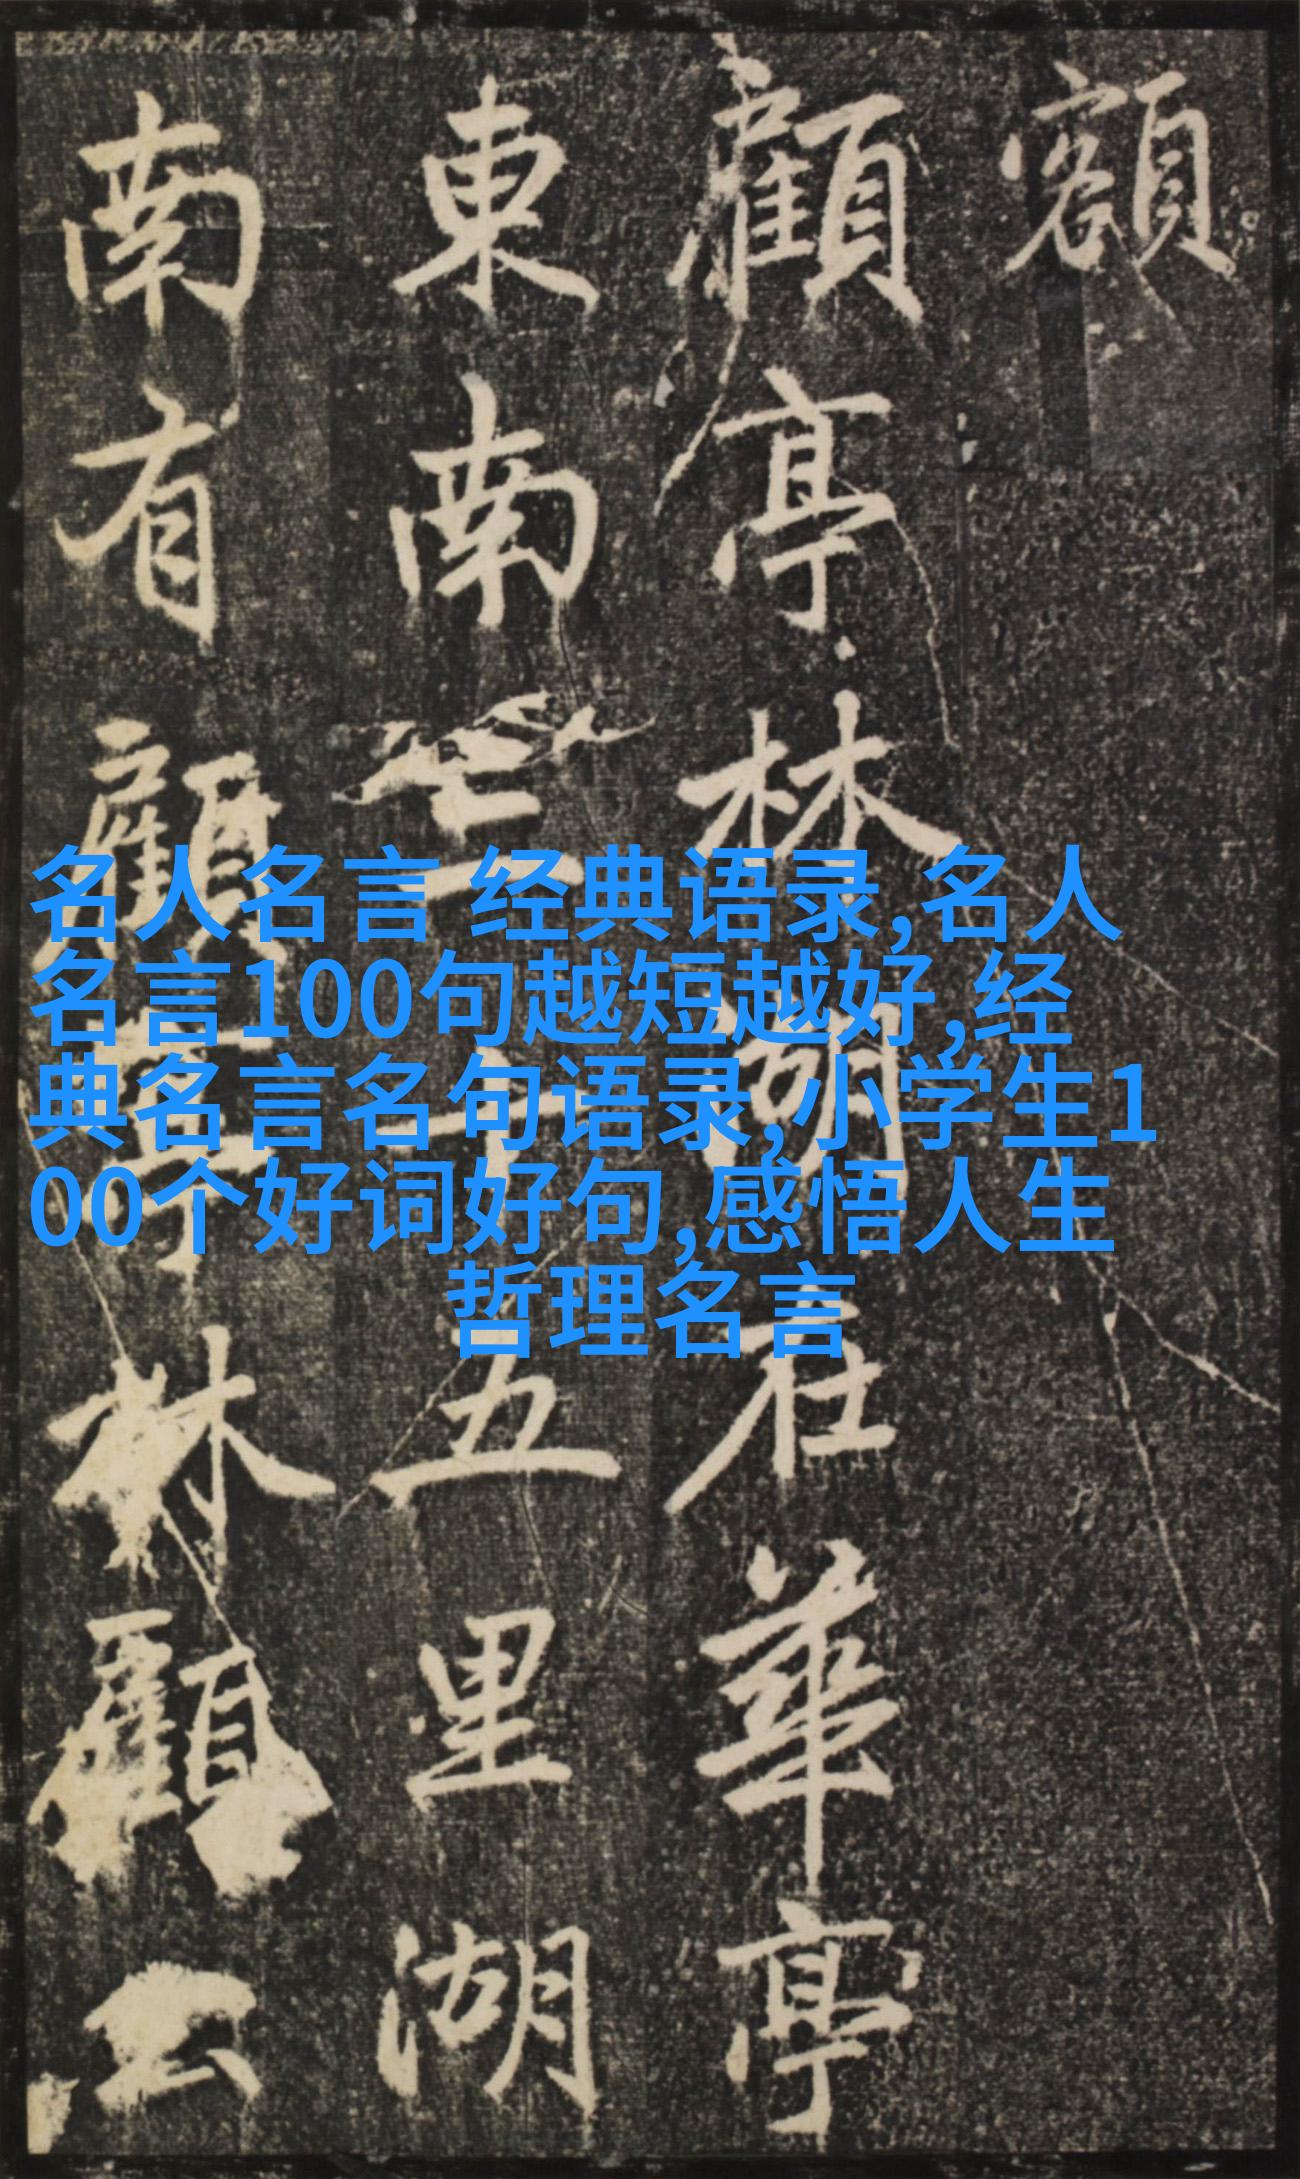 額
顧亭林湖在華亭
東南三十五里湖
南有顧亭林顧公
名人名言 经典语录,名人
名言100句越短越好,经
典名言名句语录,小学生1
00个好词好句,感悟人生
哲理名言